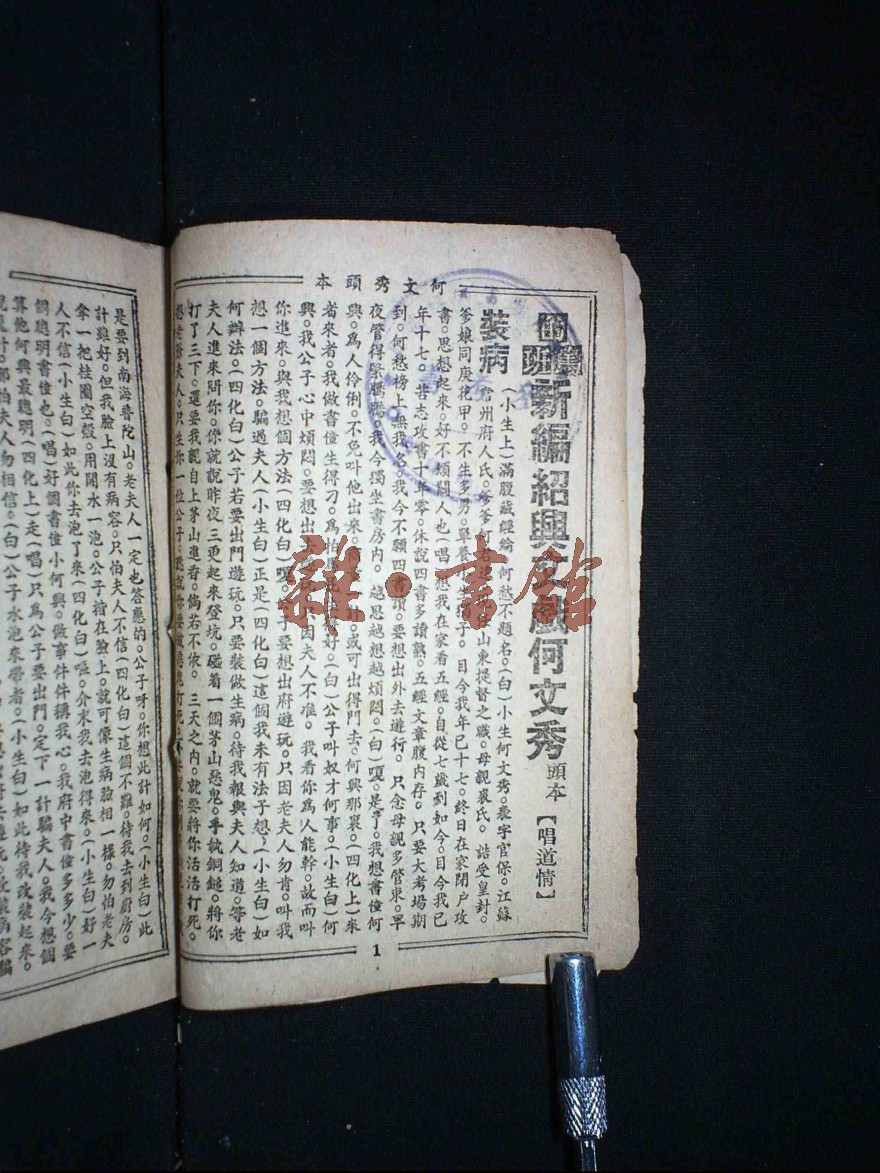 何文秀頭本
新編紹興文戲何文秀 頭本 【唱道情】
裝病 (小生上)滿腹藏經綸。何愁不題名。(白)小生何文秀。表字官保。江蘇
州府人氏。爹爹何 山東提督之職。母親裘氏。誥受皇封。
爹娘同庚花甲。不生多男。單養 子。目今我年已十七。終日在家閉户攻
書。思想起來。好不煩悶人也(唱)想我在家看五經。自從七歲到如今。目今我已
年十七。苦志攻書十年零。休說四書多讀熟。五經文章腹內存。只要大考場期
到。何愁榜上無我名。我今不願四書讀。要想出外去遊行。只念母親多管束。早
夜管得緊騰騰。我今獨坐書房內。越思越想越煩悶。(白)嗄。是了。我想書僮何
興。爲人伶俐。不免叫他出來。 或可出得門去。何興那裏。(四化上)來
者來者。我做書僮生得刁。爲怕 好。(白)公子叫奴才何事。(小生白)何
興。我公子心中煩悶。要想出去 因夫人不准。我看你爲人能幹。故而叫
你進來。與我想個方法(四化白)嗄。公子要想出府遊玩。只因老夫人勿肯。叫我
想一個方法。騙過夫人(小生白)正是(四化白)這個我未有法子想。(小生白)如
何辦法。(四化白)公子若要出門遊玩。只要裝做生病。待我報與夫人知道。等老
夫人進來問你。你說說昨夜三更起來登坑。碰着一個茅山惡鬼。手執銅鎚。將你
打了三下。還要我親自上茅山進香。倘若不依。三天之內。就要將你活活打死。
想老爺夫人。只生你一位公子。聽說你要被惡鬼打死。
1
是要到南海普陀山。老夫人一定也答應的。公子呀。你想此計如何。(小生白)此
計雖好。但我臉上沒有病容。只怕夫人不信(四化白)這個不難。待我去到厨房。
拿一把桂圓空殼。用開水一泡。公子揩在臉上。就可像生病臉相一樣。勿怕老夫
人不信(小生白)如此你去泡了來(四化白)嘔。介末我去泡得來。(小生白)好一
個聰明書僮也。(唱)好個書僮小何興。做事件件稱我心。我府中書僮多多少。要
算他何興最聰明(四化上)走(唱)只爲公子要出門。定下一計騙夫人。我今想個
夫人勿相信。(白)公子水泡來帶者。(小生白)如此待我改裝起來。
雜·書館